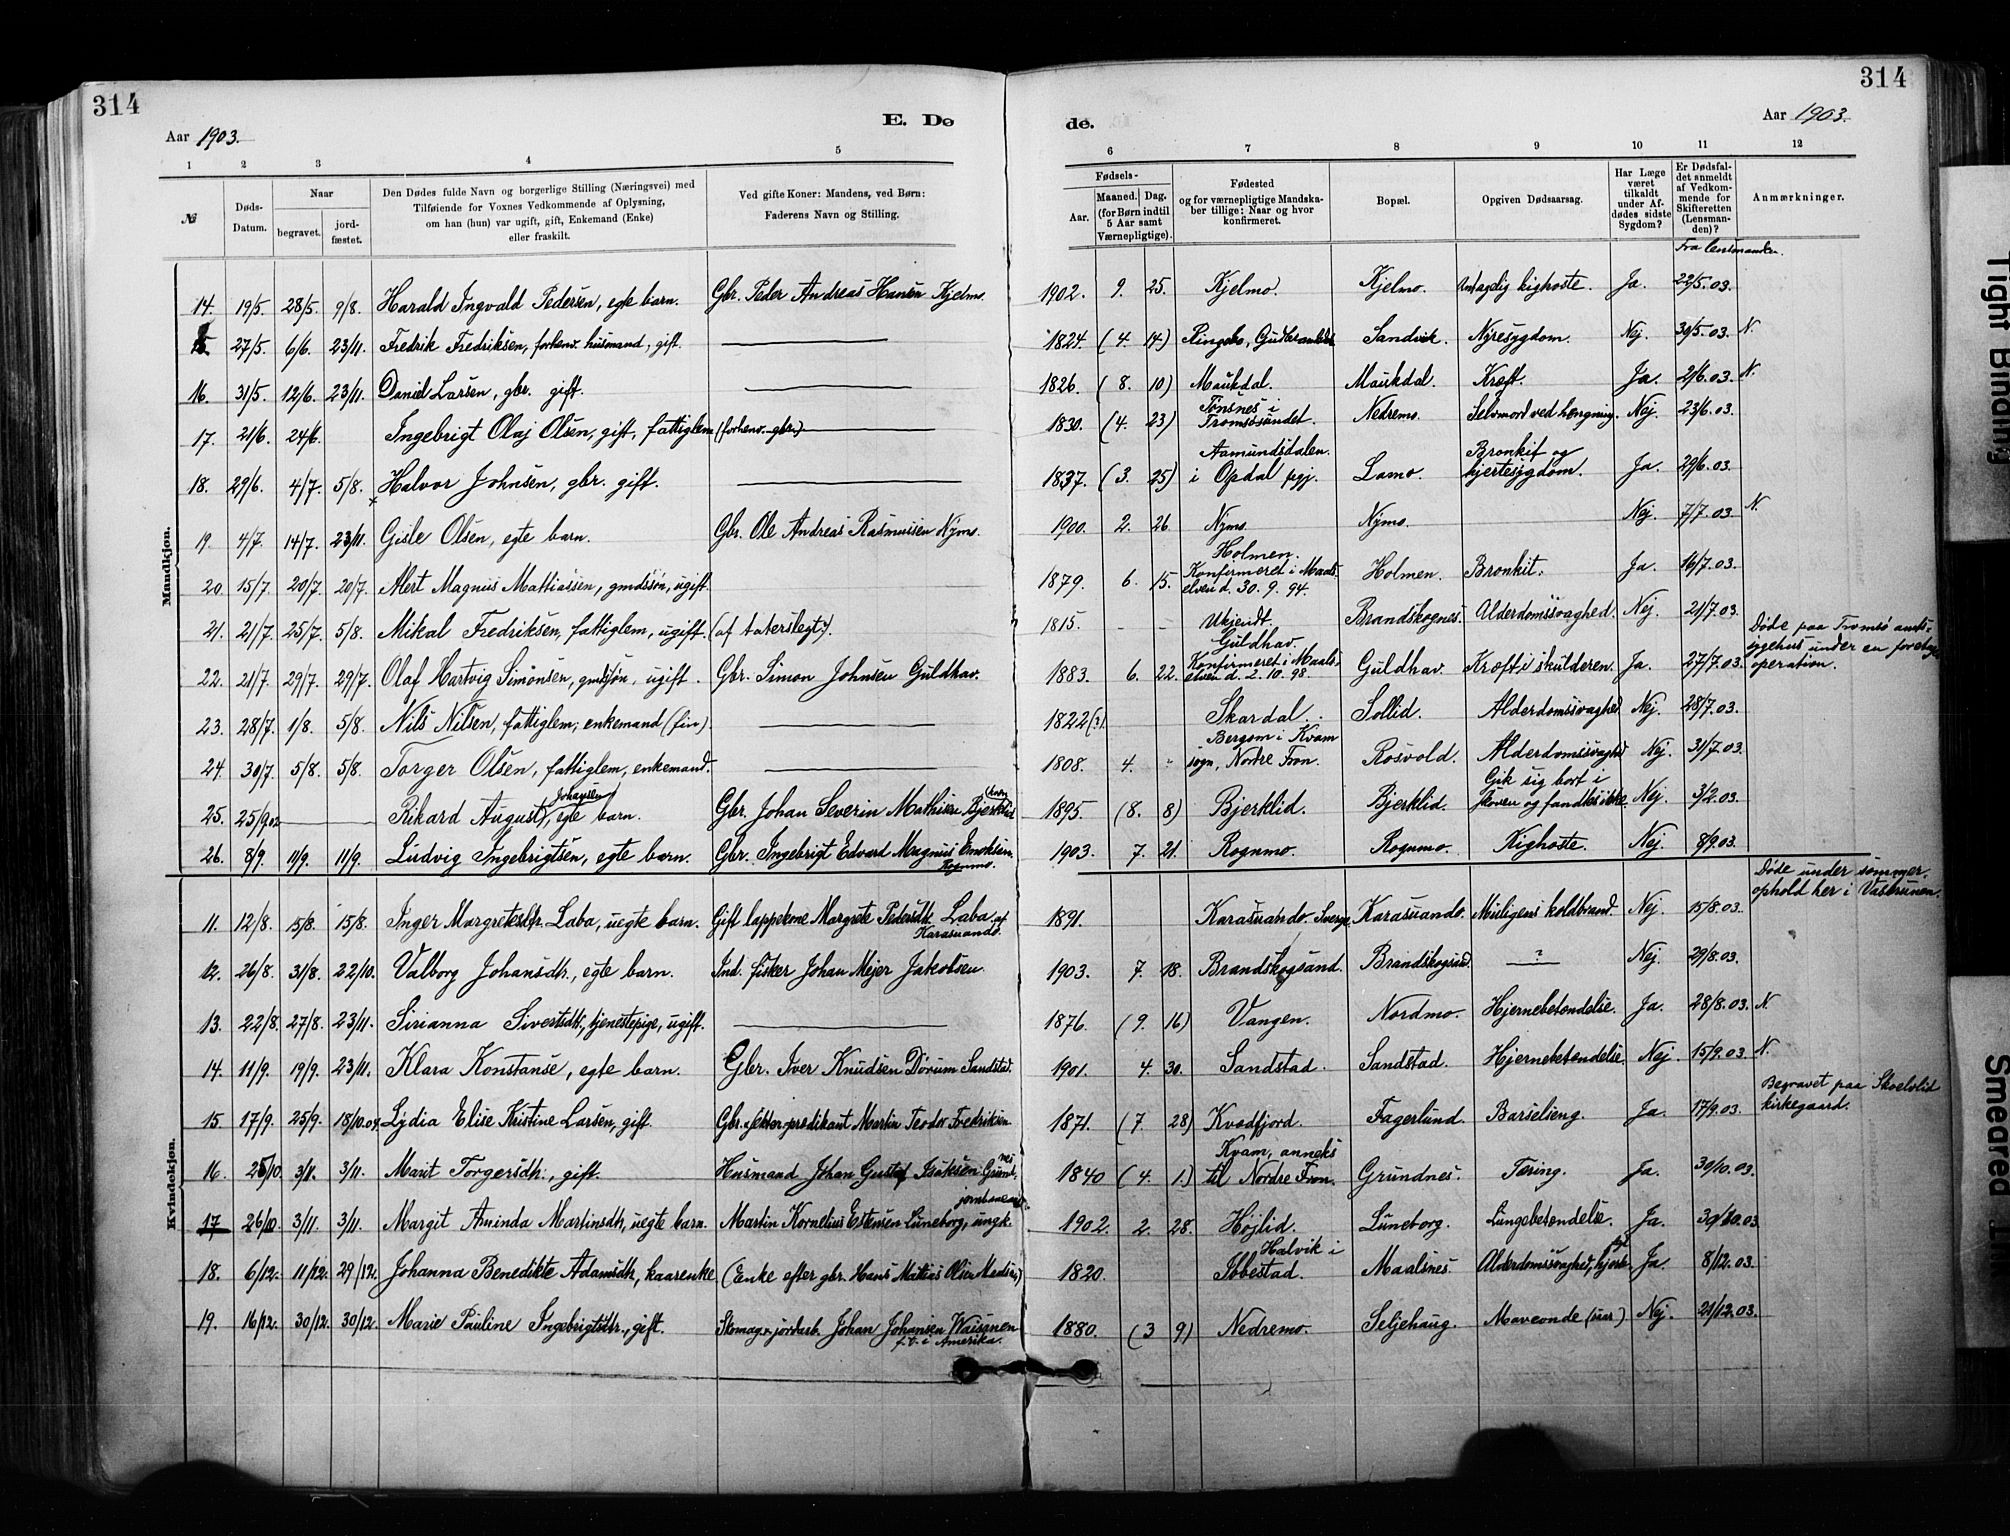 314
314
Aar 1903.
E. Dø
de.
Aar 1903.
1 2 3 4 5 6 7 8 9 10 11 12
№
Døds-Datum.
Naar
begravet.
jord-fæstet.
Den Dødes fulde Navn og borgerlige Stilling (Næringsvei) med
Tilføiende for Voxnes Vedkommende af Oplysning,
om han (hun) var ugift, gift, Enkemand (Enke)
eller fraskilt.
Ved gifte Koner: Mandens, ved Børn:
Faderens Navn og Stilling.
Fødsels-
Aar.
Maaned. Dag.
(for Børn indtil
5 Aar samt
Værnepligtige).
Fødested
og for værnepligtige Mandska-
ber tillige: Naar og hvor
konfirmeret.
Bopæl.
Opgiven Dødsaarsag.
Har Læge
været
tilkaldt
under Af-
dødes sidste
Sygdom?
Er Dødsfal-
det anmeldt
af Vedkom-
mende for
Skifteretten
(Lensman-
den)?
Anmærkninger.
Fra lensmanden.
Mandkjøn.
14. 19/5. 28/5. 9/8. Harald Ingvald Pedersen, egte barn. Gbr. Peder Andreas Hansen Kjelmo. 1902. 9. 25. Kjelmo. Kjelmo. kighoste. Ja. 22/5.03.
15. 27/5. 6/6. 23/11. Fredrik Fredriksen, forhenv. husmand, gift. 1824. (4. 14) Ringebo, Gudbrandsd. Sandvik. Nyresygdom. Nej. 30/5.03. N.
16. 31/5. 12/6. 23/11. Daniel Larsen, gbr. gift. 1826. (8. 10) Maukdal. Maukdal. Kræft. Ja. 2/6.03. N.
17. 21/6. 24/6. Ingebrigt Olaj Olsen, gift, fattiglem (forhenv. gbr.) 1830. (4. 23) Tønsnes i Tromsøsundet. Nedremo. Selvmord ved hængning. Nej. 23/6.03.
18. 29/6. 4/7. 5/8. Halvor Johnsen, gbr. gift. 1837. (3. 25) Aamundsdalen i Opdal pgj. Lamo. Bronkit og hjertesygdom. Ja. 29/6.03.
19. 4/7. 14/7. 23/11. Gisle Olsen, egte barn. Gbr. Ole Andreas Rasmussen Nymo. 1900. 2. 26. Nymo. Nymo. Nej. 7/7.03. N.
20. 15/7. 20/7. 20/7. Alert Magnus Mattiassen, gmdssøn, ugift. 1879. 6. 15. Holmen. Konfirmeret i Maalselven d. 30.9.94. Holmen. Bronkit. Ja. 16/7.03.
21. 21/7. 25/7. 5/8. Mikal Fredriksen, fattiglem, ugift. (af taterslegt). 1815. - - Ukjendt. Brandskognes. Alderdomssvaghed. Nej. 21/7.03.
22. 21/7. 29/7. 29/7. Olaf Hartvig Simonsen, gmdsøn, ugift. Gbr. Simon Johnsen Guldhav. 1883. 6. 22. Guldhav. Konfirmeret i Maalselven d. 2.10.98. Guldhav. Kræft i skulderen. Ja. 27/7.03. Døde paa Tromsø amtssygehus under en operation.
23. 28/7. 1/8. 5/8. Nils Nilsen, fattiglem, enkemand (fin). 1822(?). Skardal. Sollid. Alderdomssvaghed Nej. 28/7.03.
24. 30/7. 5/8. 5/8. Torger Olsen, fattiglem, enkemand. 1808. 4. " Bergom i Kvam sogn, Nordre Fron. Rosvold. Alderdomssvaghed Nej. 31/7.03.
25. 25/9.02 Rikard August Johansen, egte barn. Gbr. Johan Severin Mathisen Bjerklid 1895. (8. 8) Bjerklid. Bjerklid. Gik sig bort i skoven og fandtes ikke. Nej. 3/2.03.
26. 8/9. 11/9. 11/9. Ludvig Ingebrigtsen, egte barn. Gbr. Ingebrigt Edvard Magnus Enoksen Rognmo. 1903. 7. 21. Rognmo. Rognmo. Kighoste. Nej. 8/9.03.
Kvindekjøn.
11. 12/8. 15/8. 15/8. Inger Margretesdtr. Laba, uegte barn. Gift lappekone Margrete Pedersdtr. Laba af Karasuando. 1891. Karasuando. Sverge. Karasuando. Muligens koldbrand. Nej. 15/8.03. Døde under sommerophold her i
12. 26/8. 31/8. 22/10. Valborg Johansdtr., egte barn. Ind. fisker Johan Mejer Jakobsen 1903. 7. 18. Brandskogsand. Brandskogsand. ? Nej. 29/8.03.
13. 22/8. 27/8. 23/11. Sirianna Sivertsdtr., tjenestepige, ugift. 1876. (9. 16) Vangen. Nordmo. Hjernebetændelse. Ja. 28/8.03. N.
14. 11/9. 19/9. 23/11. Klara Konstanse, egte barn. Gbr. Iver Knudsen Dørum Sandstad. 1901. 4. 30. Sandstad. Sandstad. Hjernebetændelse. Nej. 15/9.03. N.
15. 17/9. 25/9. 18/10.04. Lydia Elise Kristine Larsen, gift. Gbr. & sekterprædikant Martin Teodor Fredriksen 1871. (7. 28) Kvædfjord. Fagerlund. Barselseng. Ja. 17/9.03. Begravet paa kirkegaard.
16. 3/11. 3/11. Marit Torgersdtr., gift. Husmand Johan Gustaf Isaksen Grundnes 1840 (4. 1.) Kvam, anneks til Nordre Fron. Grundnes. Tæring. Ja. 30/10.03.
17 26/10. 3/11. 3/11. Margit Aminda Martinsdtr., uegte barn. Martin Kornelius Estensen Lüneborg, ungk. 1902. 2. 28. Højlid. Lüneborg. Lungebetændelse. Ja. 30/10.03.
18. 6/12. 11/12. 29/12. Johanna Benedikte Adamsdtr, kaarenke (Enke efter gbr. Hans Mathias Olsen 1820. Halvik i Ibbestad. Maalsnes. Alderdomssvaghed, Ja. 8/12.03.
19. 16/12. 30/12. 30/12. Marie Pauline Ingebrigtsdtr., gift. Skomag. & jordarb. Johan Johansen Waisanen f.t. i Amerika. 1880. (3 9) Nedremo. Seljehaug. Maveonde Nej. 21/12.03.
Tight Binding
Smeared Ink